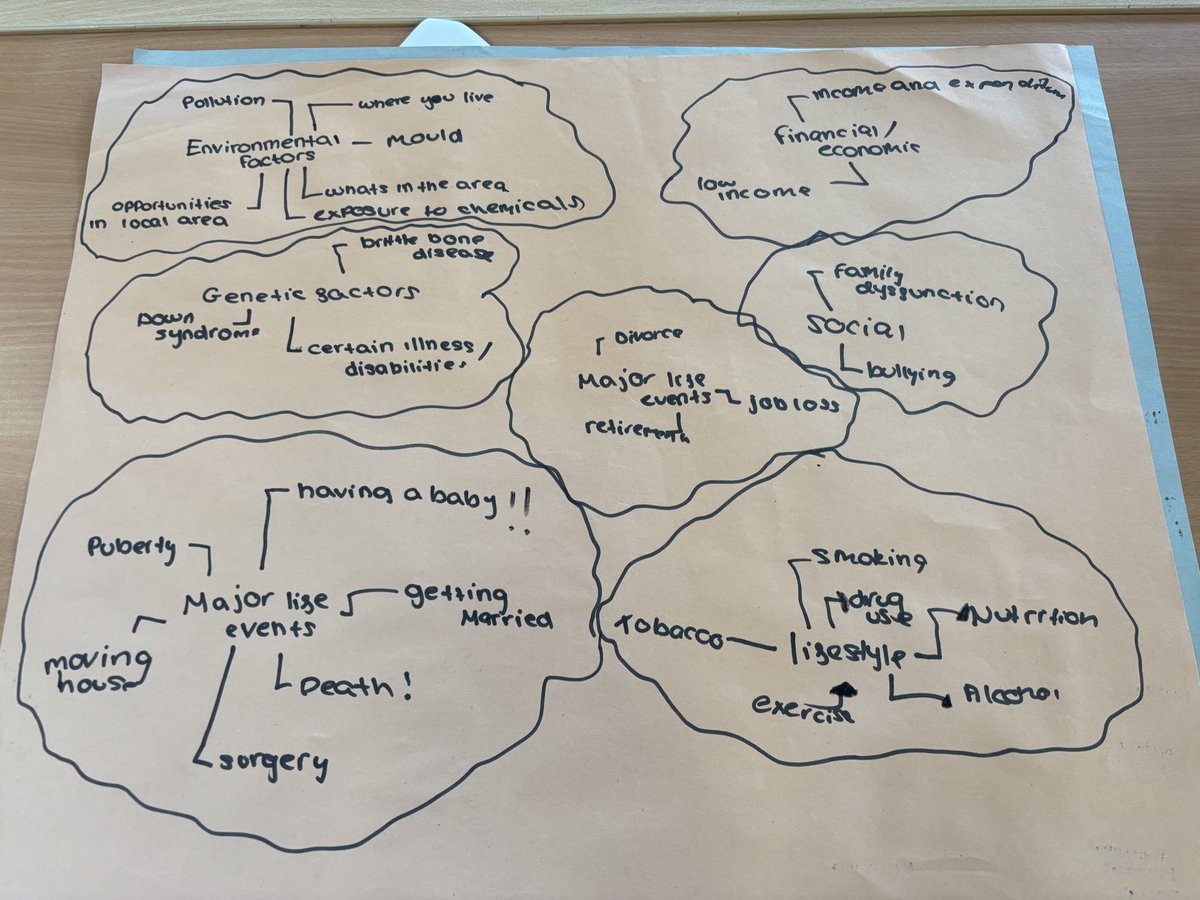 Pollution
where you live
Environmental
factors
Mould
whats in the area
exposure to chemicals
opportunities
in local area
income and expenditure
financial/
economic
low
income
brittle bone
disease
Genetic factors
Down
syndrome
certain illness/
disabilities
family
dysfunction
social
bullying
Divorce
Major life
events
job loss
retirement
having a baby!!
Puberty
Major life
events
getting
Married
moving
house
Death!
sorgery
smoking
drug
use
Tobacco
lifestyle
Nutrition
exercise
Alcohol